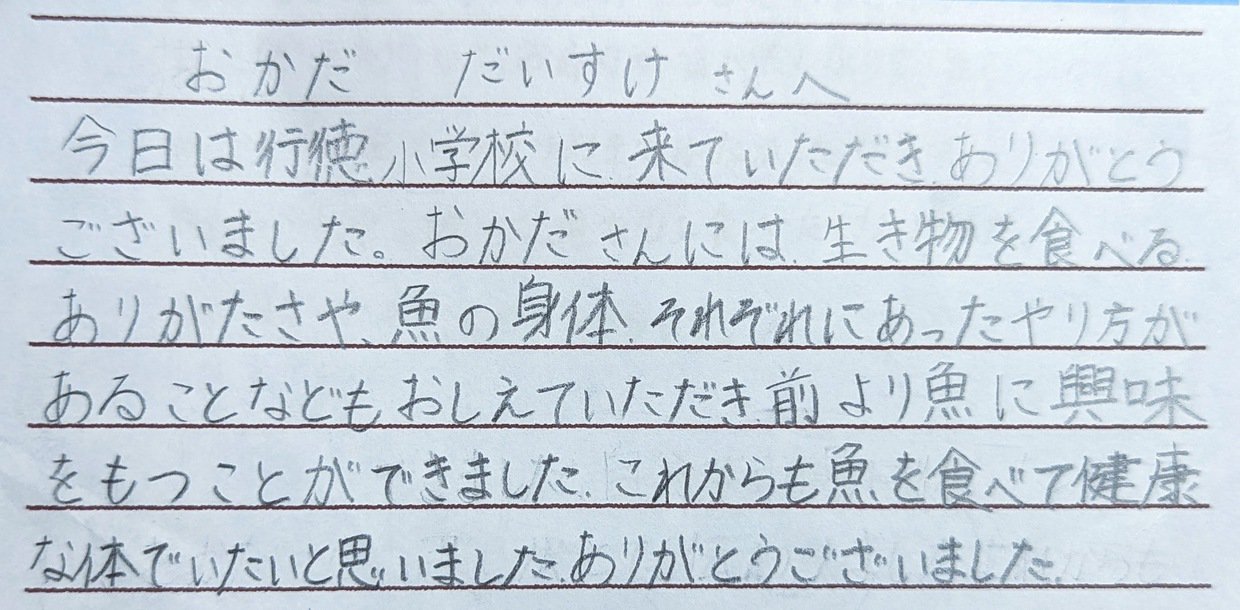 おかだ だいすけ さんへ
今日は行徳小学校に来ていただき、ありがとう
ございました。おかださんには、生き物を食べる
ありがたさや、魚の身体、それぞれにあったやり方が
あることなどもおしえていただき、前より魚に興味
をもつことができました。これからも魚を食べて健康
な体でいたいと思いました。ありがとうございました。